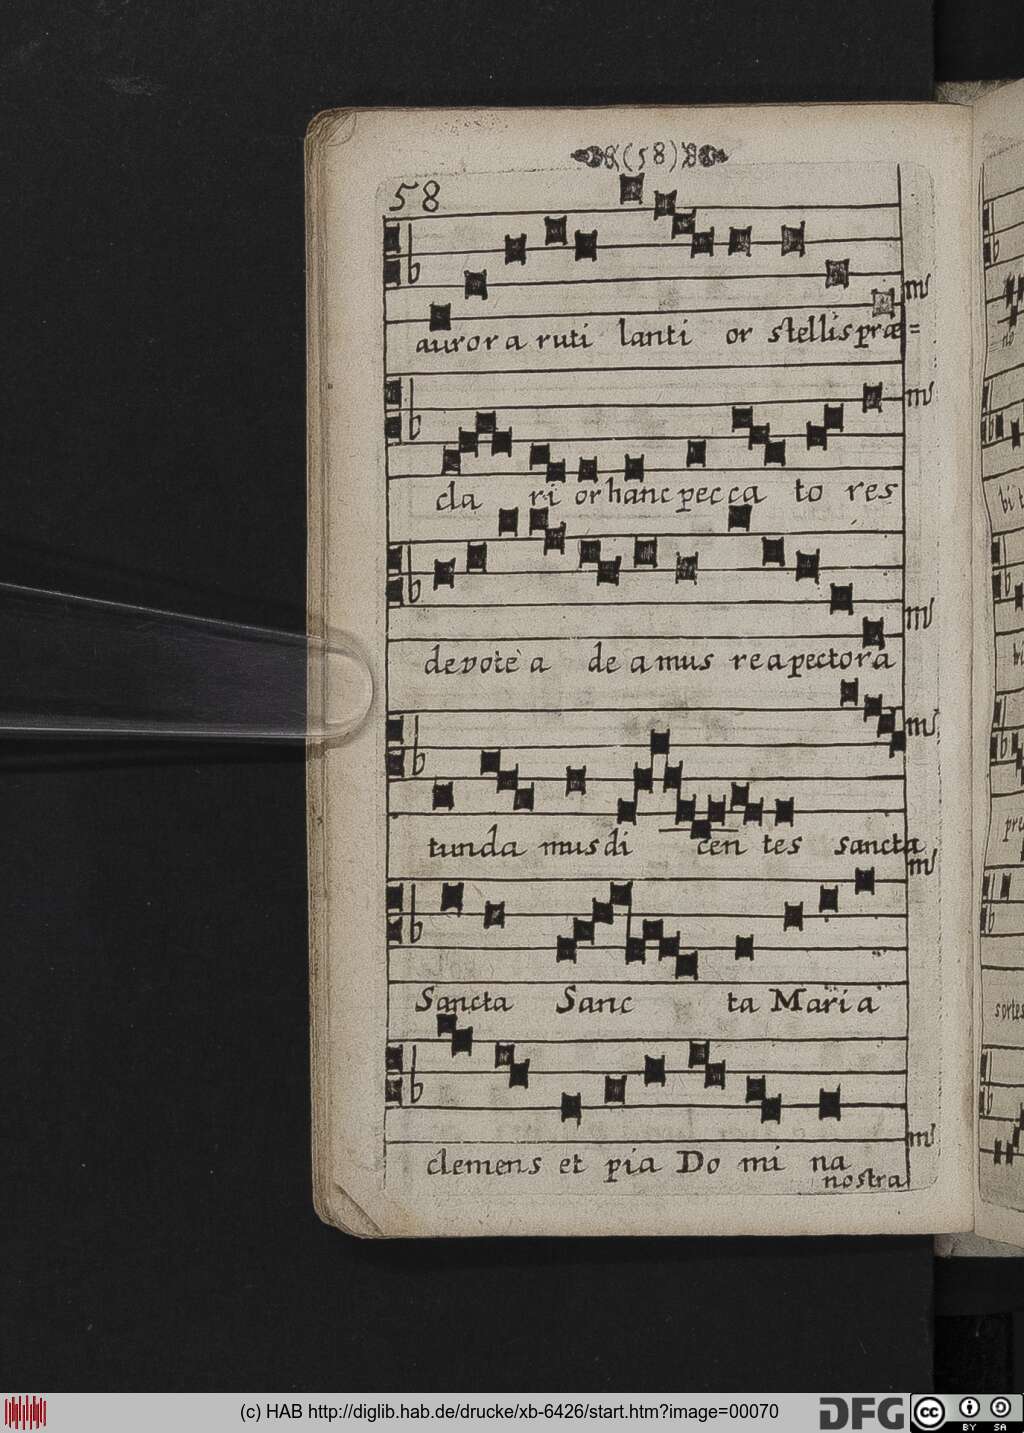 (58)
58
aurora ruti lanti or stellis præ=
cla ri or hanc pecca to res
devote a de amus rea pectora
tunda mus di cen tes sancta
Sancta Sanc ta Maria
clemens et pia Do mi na
nostra
(c) HAB http://diglib.hab.de/drucke/xb-6426/start.htm?image=00070
DFG
cc
BY SA